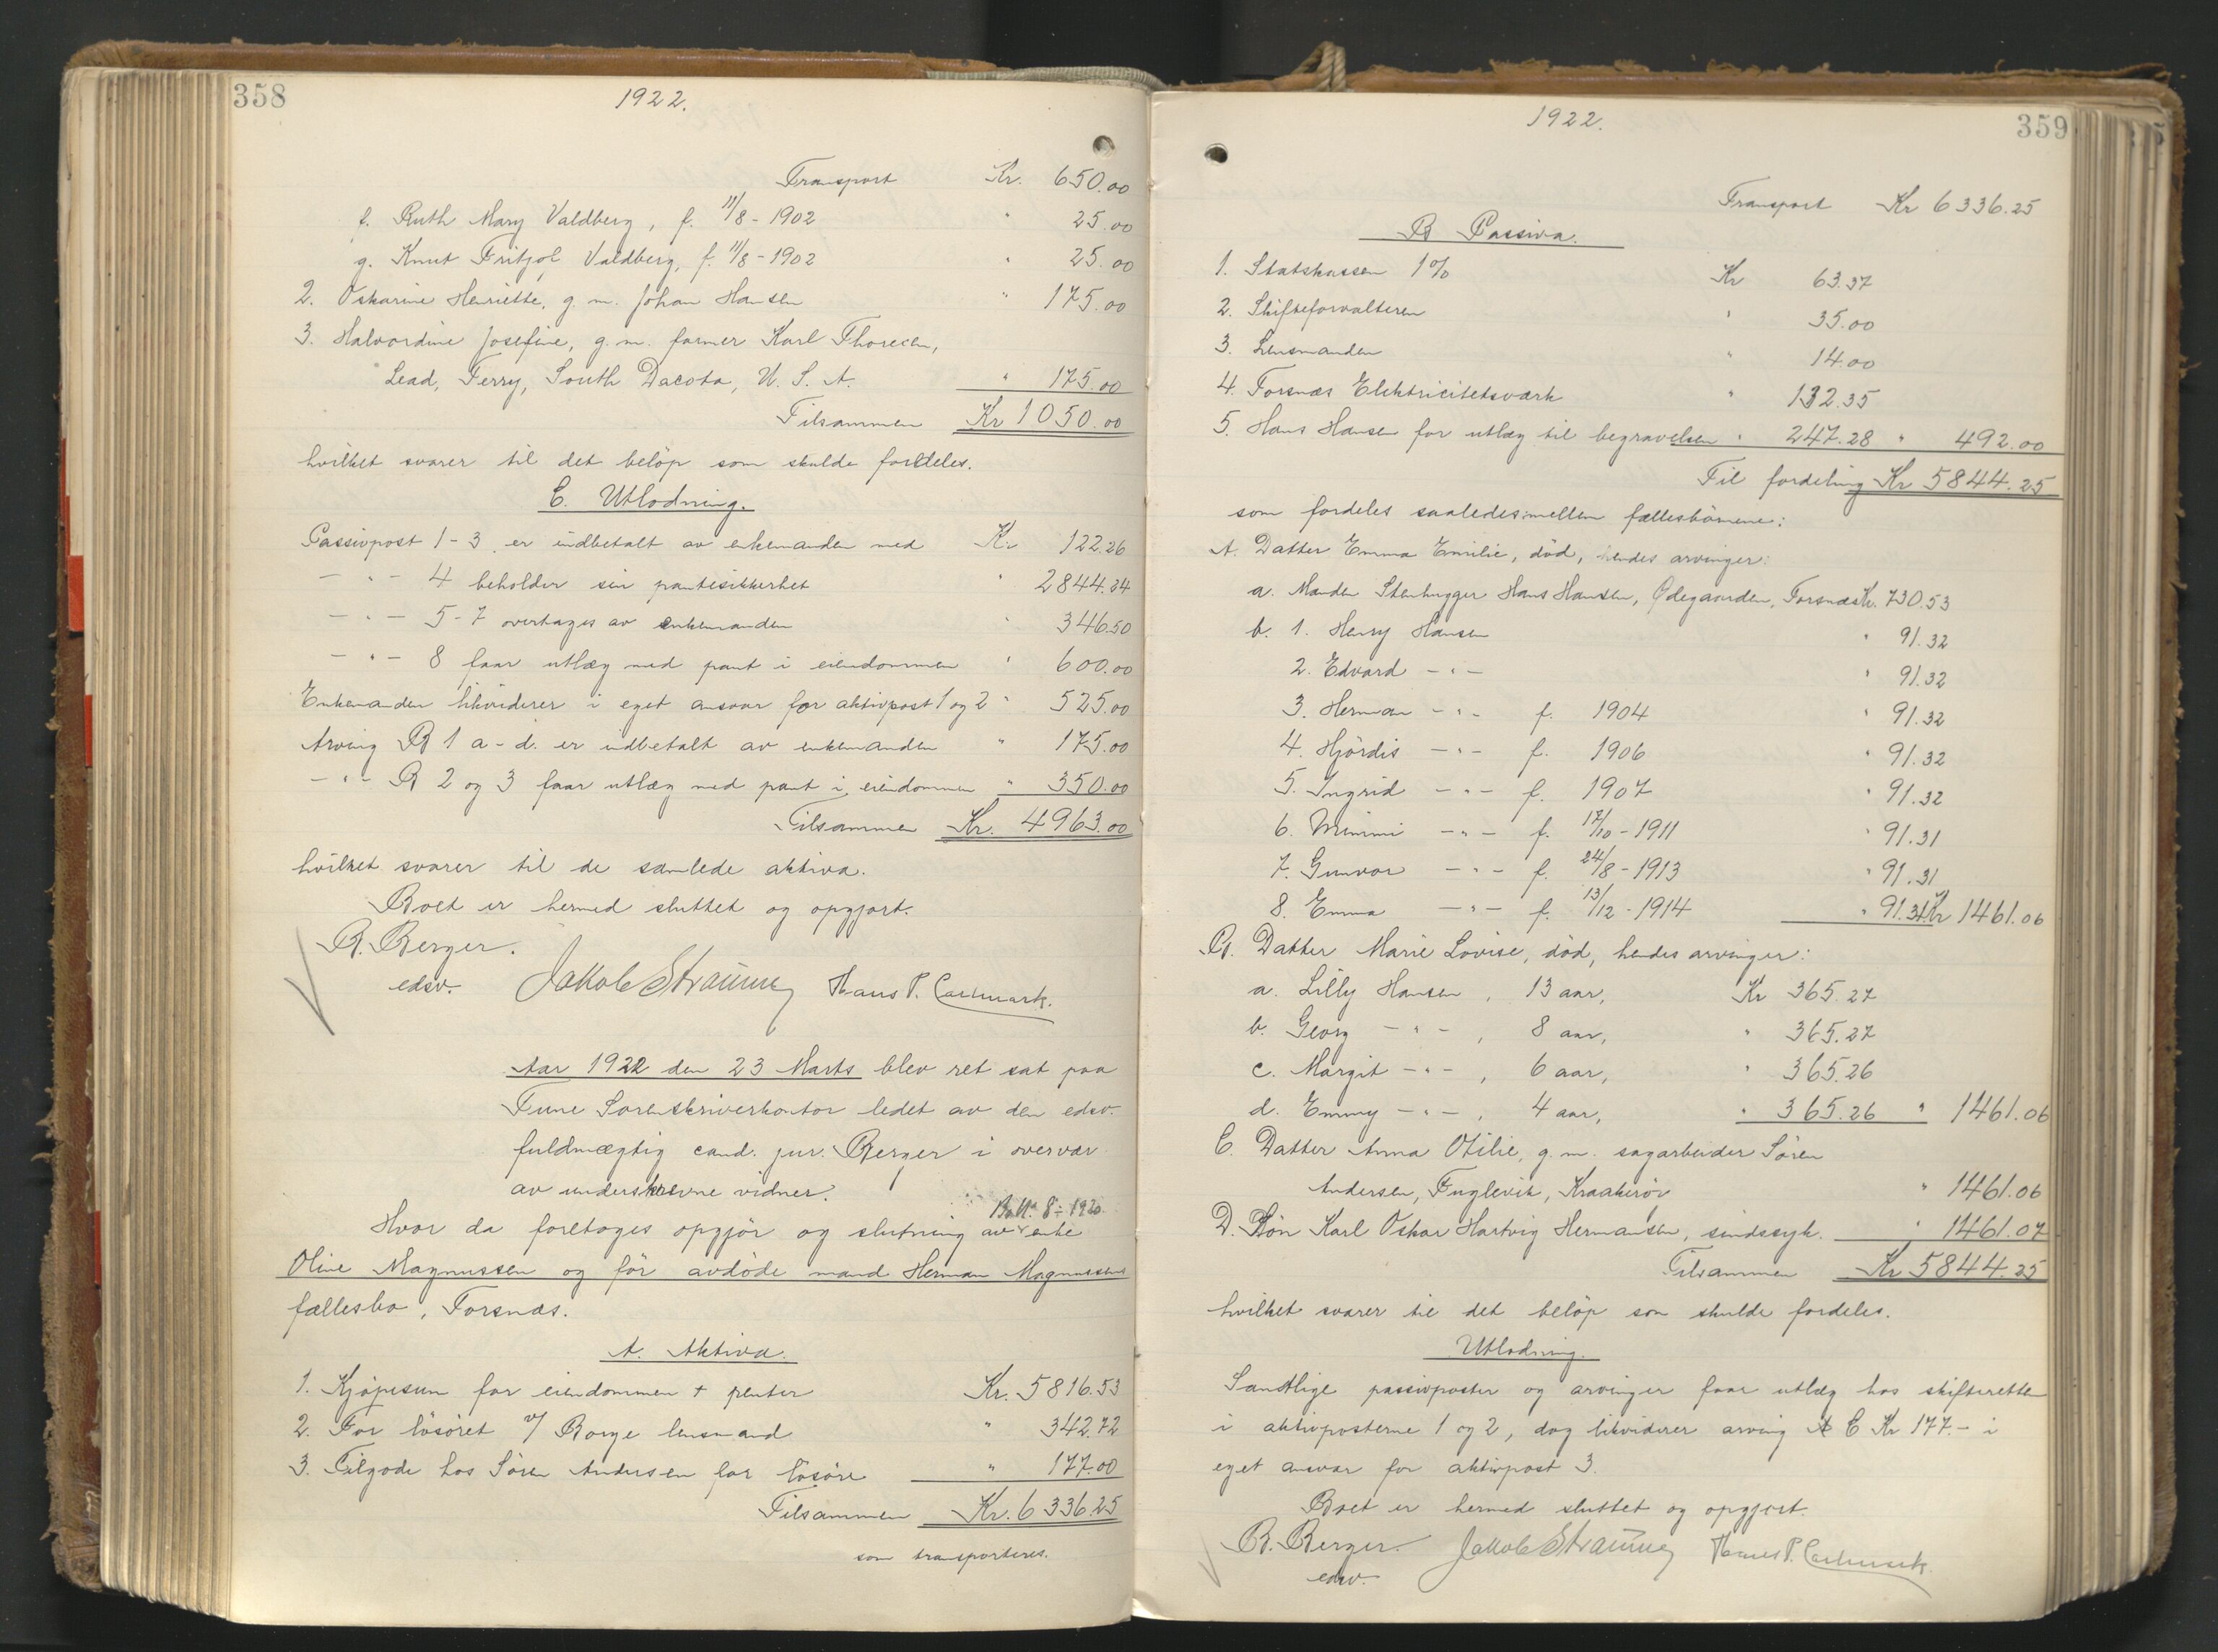 358
1922.
Transport Kr. 650.00
f. Ruth Mary Valdberg, f. 11/8 - 1902 " 25.00
g. Knut Fritjof Valdberg, f. 11/8 - 1902 " 25.00
2. Oskarine Henriette, g. m. Johan Hansen " 175.00
3. Halvordine Josefine, g. m. farmer Karl Thoresen,
Lead, Terry, South Dacota, U. S. A. " 175.00
Tilsammen Kr 1050.00
hvilket svarer til det beløp som skulde fordeles.
C. Utlodning.
Passivpost 1-3 er indbetalt av enkemanden med Kr 122.26
- " - 4 beholder sin pantesikkerhet " 2844.24
- " - 5-7 overtages av enkemanden " 346.50
- " - 8 faar utlæg med pant i eiendommen " 600.00
Enkemanden likviderer i eget ansvar for aktivpost 1 og 2 " 525.00
Arving B 1 a-d. er utbetalt av enkemanden " 175.00
- " - B 2 og 3 faar utlæg med pant i eiendommen " 350.00
Tilsammen Kr. 4963.00
hvilket svarer til de samlede aktiva.
Boet er hermed sluttet og opgjort.
B. Berger.
edsv. Jakob Straume Hans P. Carlmark.
Aar 1922 den 23 Marts blev ret sat paa
Tune Sorenskriverkontor ledet av den edsv.
fuldmægtig cand. jur. Berger i overvær
av underskrevne vidner.
Bo Nr. 8 - 1920
Hvor da foretoges opgjør og slutning av enke
Oline Magnussen og før avdøde mand Herman Magnussens
fællesbo, Torsnæs.
A. Aktiva.
1. Kjøpesum for eiendommen + renter Kr. 5816.53
2. For løsøret v/ Borge lensmand " 342.72
3. Tilgode hos Søren Andersen for løsøre " 177.00
Tilsammen Kr. 6336.25
som transporteres.
1922.
359
Transport Kr 6336.25
B Passiva.
1. Statskassen 1% Kr 63.37
2. Skifteforvalteren " 35.00
3. Lensmanden " 14.00
4. Torsnæs Elektricitetsværk " 132.35
5. Hans Hansen for utlæg til begravelsen " 247.28 " 492.00
Til fordeling Kr 5844.25
som fordeles saaledes mellem fællesbørnene:
A. Datter Emma Emilie, død, hendes arvinger:
a. Manden Stenhugger Hans Hansen, Ødegaarden, Torsnæs Kr. 730.53
b. 1. Henry Hansen " 91.32
2. Edvard - " - " 91.32
3. Herman - " - f. 1904 " 91.32
4. Hjørdis - " - f. 1906 " 91.32
5. Ingrid - " - f. 1907 " 91.32
6. Mimmi - " - f. 17/10 - 1911 " 91.31
7. Gunvor - " - f. 24/8 - 1913 " 91.31
8. Emma - " - f. 13/12 - 1914 " 91.31 Kr 1461.06
B. Datter Marie Lovise, død, hendes arvinger:
a. Lilly Hansen, 13 aar, Kr 365.27
b. Georg - " - , 8 aar, " 365.27
c. Margit - " - , 6 aar, " 365.26
d. Emmy - " - , 4 aar, " 365.26 " 1461.06
C. Datter Anna Otilie, g. m. sagarbeider Søren
Andersen, Fuglevik, Kraakerøy " 1461.06
D. Søn Karl Oskar Hartvig Hermansen, sindssyk. " 1461.07
Tilsammen Kr 5844.25
hvilket svarer til det beløp som skulde fordeles.
Utlodning.
Samtlige passivposter og arvinger faar utlæg hos skifteretten
i aktivposterne 1 og 2, dog likviderer arving C Kr 177.- i
eget ansvar for aktivpost 3.
Boet er hermed sluttet og opgjort.
B. Berger. Jakob Straume Hans P. Carlmark.
edsv.